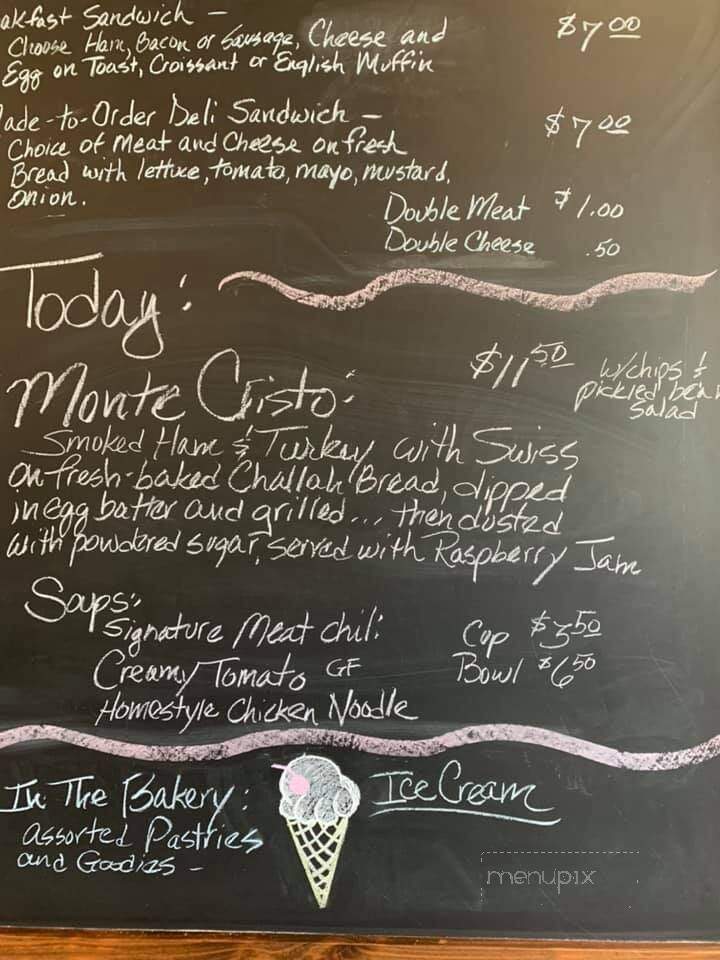 akfast Sandwich - $7.00
Choose Ham, Bacon or Sausage, Cheese and
Egg on Toast, Croissant or English Muffin
ade-to-Order Deli Sandwich - $7.00
Choice of Meat and Cheese on fresh
Bread with lettuce, tomato, mayo, mustard,
onion.
Double Meat $1.00
Double Cheese .50
Today:
Monte Cristo: $11.50 w/chips &
pickled bean
salad
Smoked Ham & Turkey with Swiss
on fresh-baked Challah Bread, dipped
in egg batter and grilled... then dusted
with powdered sugar, served with Raspberry Jam
Soups:
Signature Meat Chili Cup $3.50
Creamy Tomato GF Bowl $6.50
Homestyle Chicken Noodle
In The Bakery: Ice Cream
assorted Pastries
and Goodies -
menupix